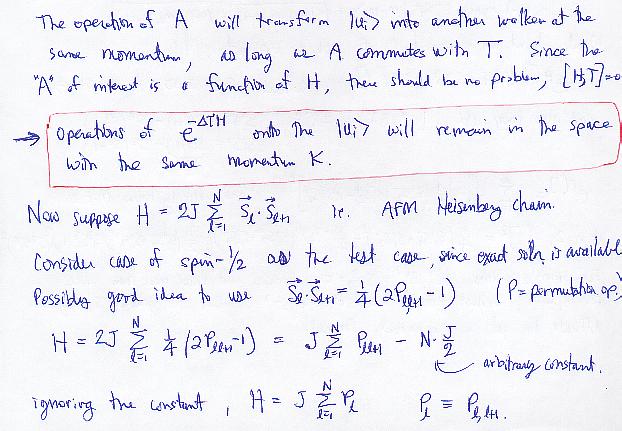 The operation of A will transform |uᵢ> into another walker at the
same momentum, as long as A commutes with T. Since the
"A" of interest is a function of H, there should be no problem, [H,T]=0
→ Operations of e^{-ΔτH} onto the |uᵢ> will remain in the space
with the same momentum K.
Now suppose H = 2J Σ_{l=1}^{N} S⃗_l·S⃗_{l+1} ie. AFM Heisenberg chain.
Consider case of spin-1/2 as the test case, since exact soln is available
Possibly good idea to use S⃗_l·S⃗_{l+1} = 1/4 (2P_{l,l+1} - 1) (P = permutation op.)
H = 2J Σ_{l=1}^{N} 1/4 (2P_{l,l+1} - 1) = J Σ_{l=1}^{N} P_{l,l+1} - N·J/2
arbitrary constant.
ignoring the constant, H = J Σ_{l=1}^{N} P_l P_l ≡ P_{l,l+1}.